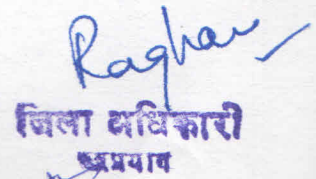 Raghav
जिला अधिकारी
रुद्रप्रयाग